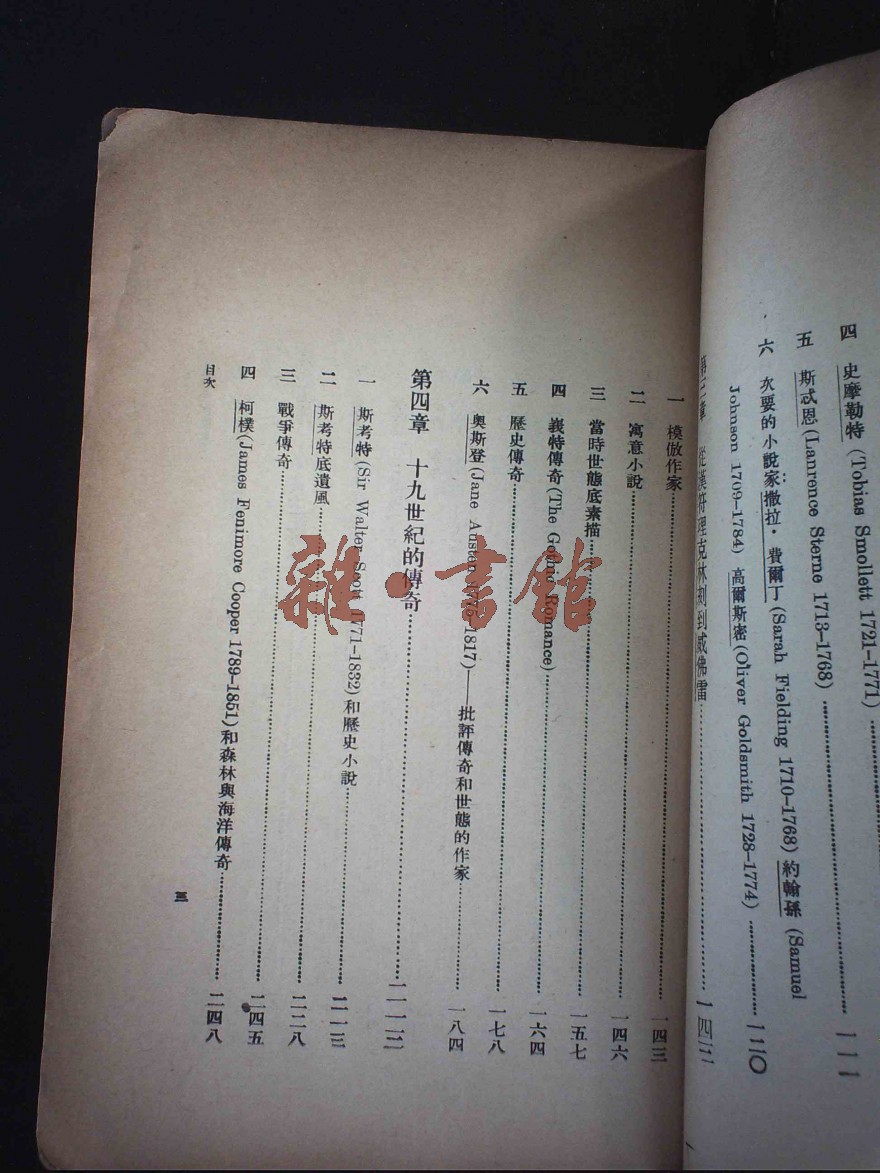 四 史摩勒特 (Tobias Smollett 1721–1771)
五 斯忒恩 (Lanrence Sterne 1713–1768)……一一一
六 次要的小說家:撒拉·費爾丁 (Sarah Fielding 1710–1768) 約翰孫 (Samuel
Johnson 1709–1784) 高爾斯密 (Oliver Goldsmith 1728–1774)……一二〇
第三章 從漢符理克林刻到威佛雷……一四三
一 模倣作家……一四三
二 寓意小說……一四六
三 當時世態底素描……一五七
四 峩特傳奇 (The Gothic Romance)……一六四
五 歷史傳奇……一七八
六 奧斯登 (Jane Austan 1775–1817)——批評傳奇和世態的作家……一八四
第四章 十九世紀的傳奇……二一三
一 斯考特 (Sir Walter Scott 1771–1832) 和歷史小說……二一三
二 斯考特底遺風……二二八
三 戰爭傳奇……二四五
四 柯樸 (James Fenimore Cooper 1789–1851) 和森林與海洋傳奇……二四八
目次
三
雜·書館